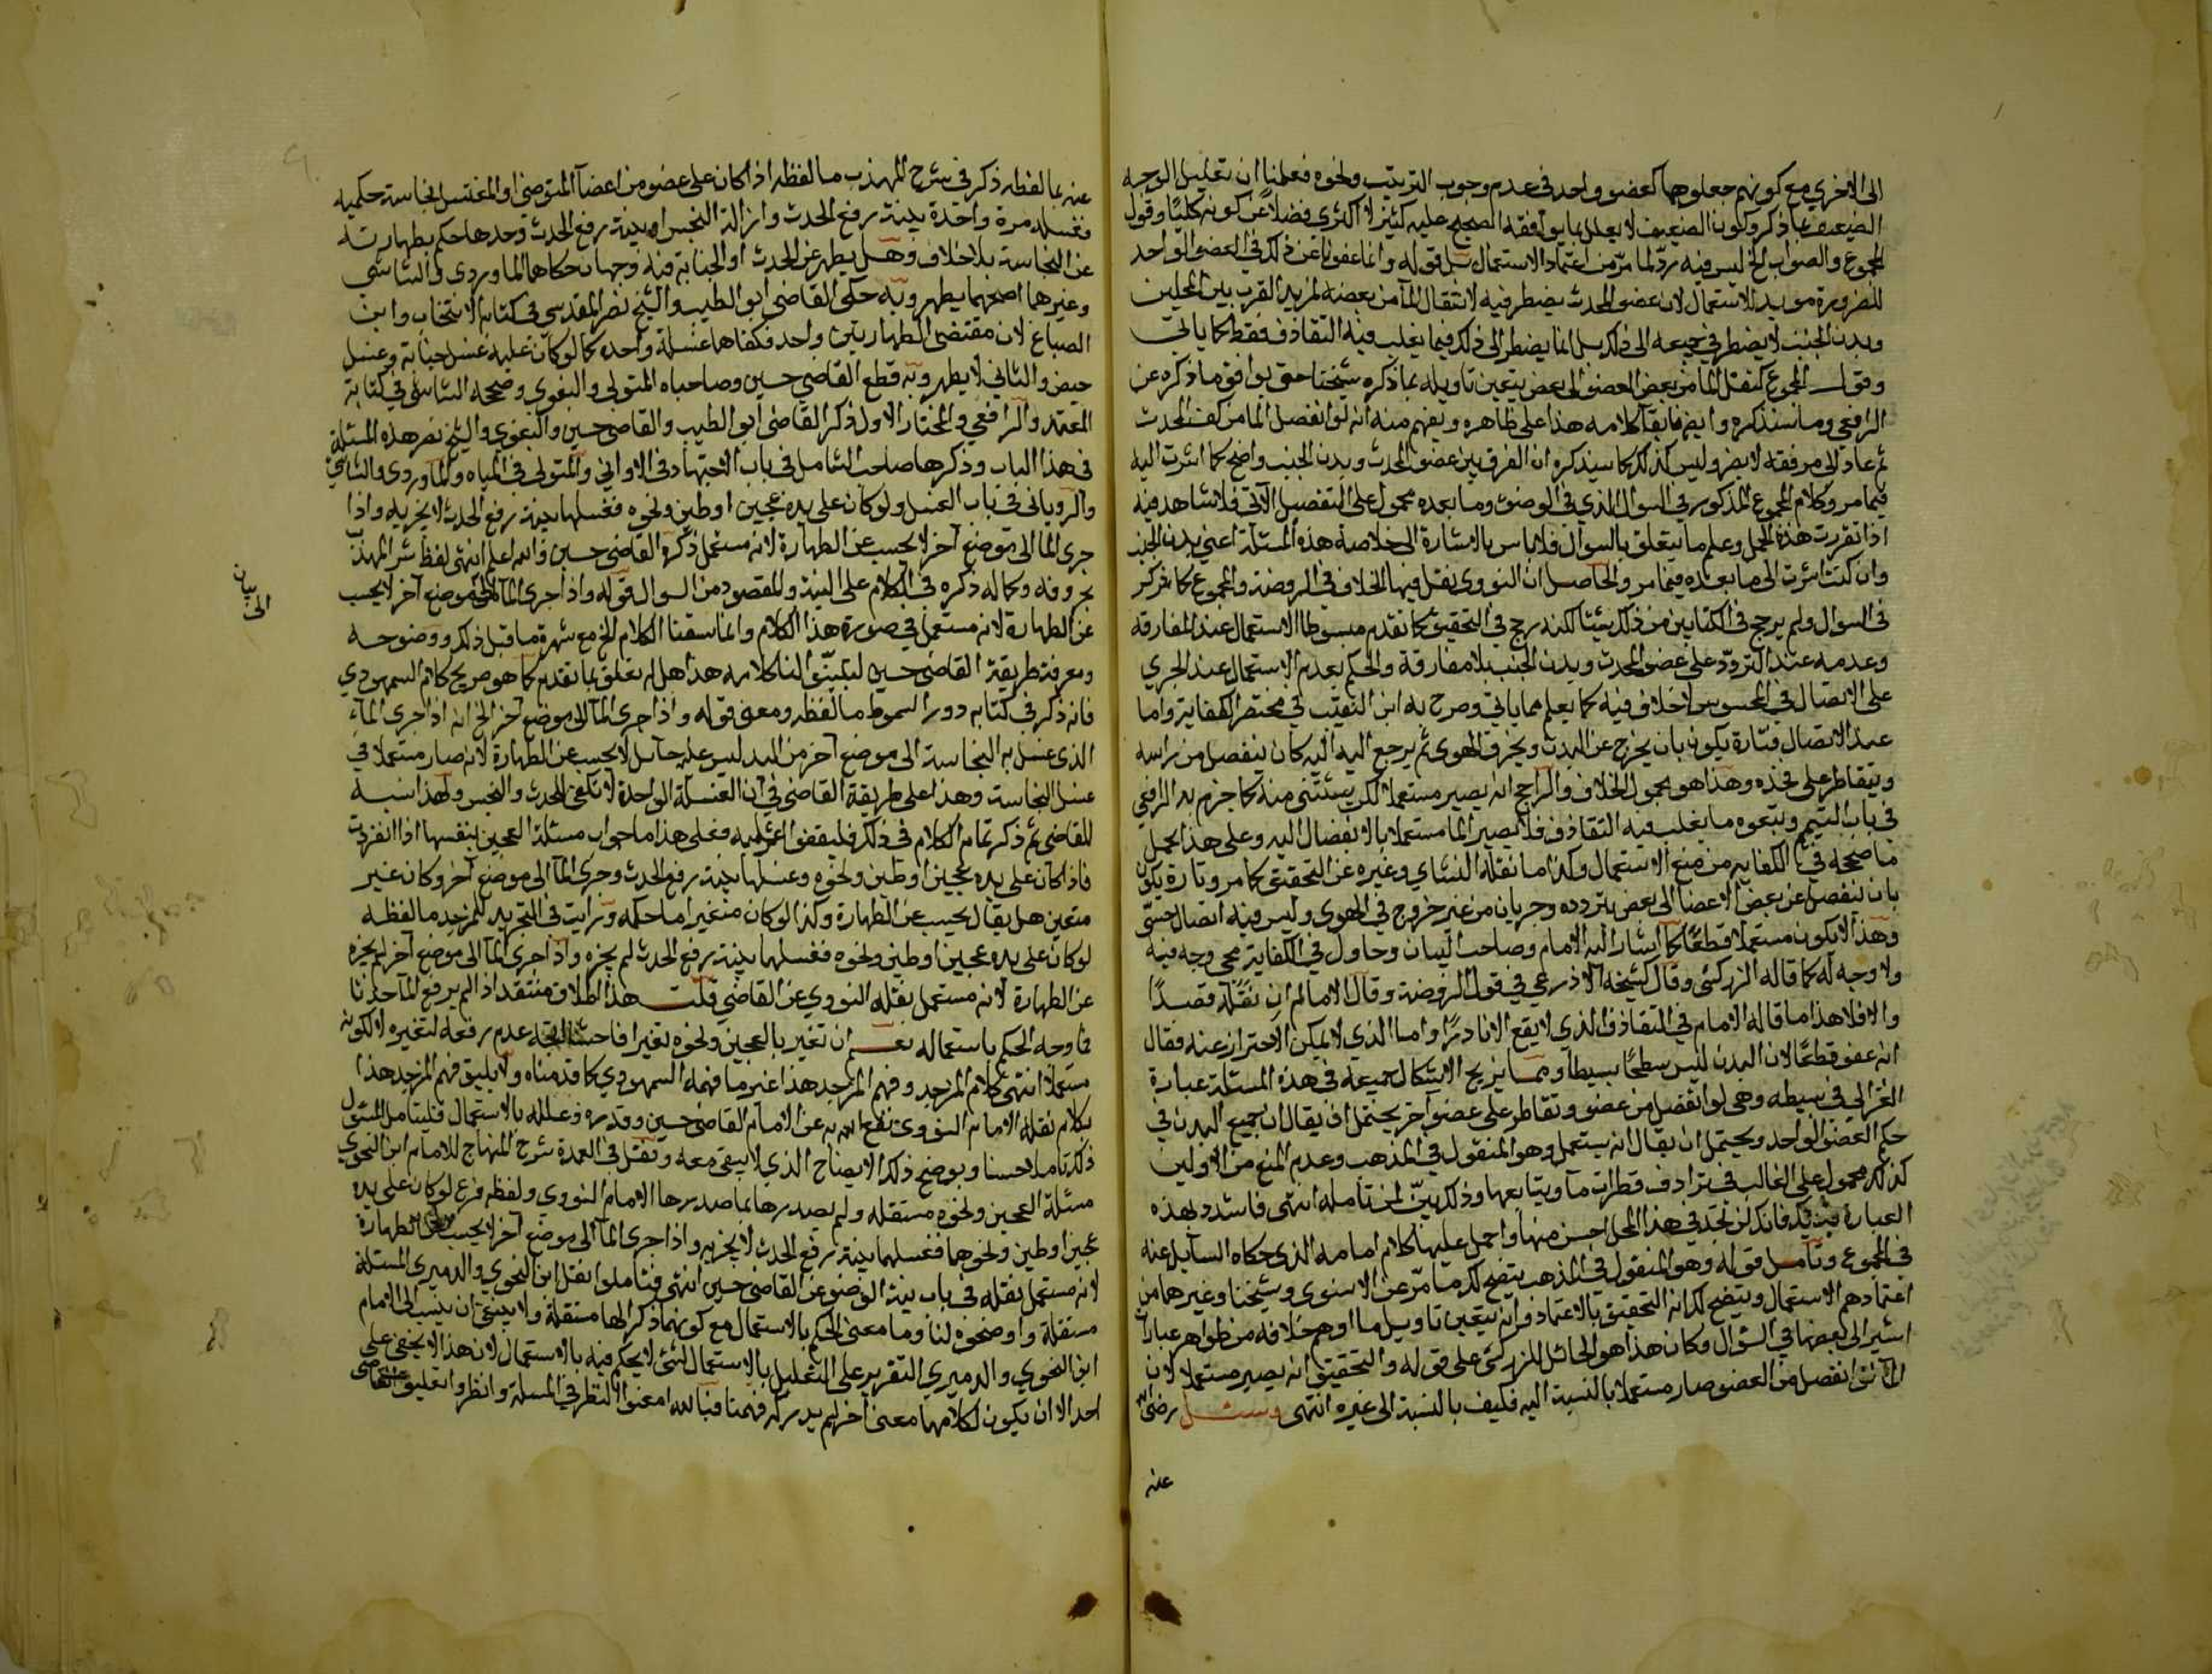 الى الاخرى مع كونهم جعلوهما كعضو واحد فى عدم وجوب الترتيب ونحوه فعلمنا ان تعليل الوجه
الضعيف بما ذكر وكون الضعيف لا يعلل بما يوافقه الصحيح عليه كثير لا اكثرى فضلاً عن كونه كليًا وقول
المجموع والصواب الخ ليس فيه ردّ لما مرّ من اعتماد الاستعمال بل قوله وانما عفونا عن ذلك فى العضو الواحد
للضرورة مويد للاستعمال لان عضو المحدث يضطر فيه لانتقال الما من بعضه لمزيد القرب بين المحلين
وبدن الجنب لا يضطر فى جميعه الى ذلك بل انما يضطر الى ذلك فيما يغلب فيه التقاذف فقط كما ياتى
وقول المجموع كنقل الما من بعض العضو الى بعض يتعين تاويله بما ذكره شيخنا حتى يوافق ما ذكره عن
الرافعى وما سنذكره وايضا فابقا كلامه هذا على ظاهره ويفهم منه انه لو انفصل الما من كف المحدث
ثم عاد الى مرفقه لا يضر وليس كذلك كما سيذكره ان الفرق بين عضو المحدث وبدن الجنب واضح كما اشرت اليه
فيما مر وكلام المجموع المذكور فى السوال الذي فى الوضوء وما بعده محمول على التفصيل الآتى فلا شاهد فيه
اذا تقررت هذه الجمل وعلم ما يتعلق بالسوال فلا باس بالاشارة الى خلاصة هذه المسئلة اعنى بدن الجنب
وان كنت اشرت الى ما بعده فيما مر والحاصل ان النووى نقل فيها الخلاف فى الروضة والمجموع كما ذكر
فى السوال ولم يرجح فى الكتابين من ذلك شيئا لكنه رجح فى التحقيق كما تقدم مبسوطا الاستعمال عند المفارقة
وعدمه عند التردّد على عضو المحدث وبدن الجنب بلا مفارقة والحكم بعدم الاستعمال عند الجرى
على الاتصال فى المحسوس لا خلاف فيه كما يعلم مما ياتى وصرح به ابن النقيب فى مختصر الكفاية واما
عند الانفصال فتارة يكون بان يخرج عن البدن ويخرق الهوى ثم يرجع اليه كان ينفصل من راسه
ويتقاطر على فخذه وهذا هو محول الخلاف والراجح انه يصير مستعملا لكن يستثنى منه كما جزم به الرافعى
فى باب التيمم وتبعوه ما يغلب فيه التقاذف فلا يصير الما مستعملا بالانفصال اليه وعلى هذا يحمل
ما صححه فى الكفاية من منع الاستعمال وكذا ما نقله النشاي وغيره عن التحقيق كما مر وتارة يكون
بان ينفصل عن بعض الاعضا الى بعض بتردده وجريان من غير خروج فى الهوى وليس فيه اتصال حسّى
وهذا لا يكون مستعملا قطعًا كما اشار اليه الامام وصاحب البيان وحاول فى الكفاية مجى وجه فيه
ولا وجه له كما قاله الزركشى وقال كشيخه الاذرعى فى قول الروضة وقال الامام ان نقله قصدًا
والا فلا هذا ما قاله الامام فى التقاذف الذى لا يقع الا نادرًا واما الذى لا يمكن الاحتراز عنه فقال
انه عفو قطعًا لان البدن ليس سطحًا بسيطا ومما يزيح الاشكال جميعه فى هذه المسئلة عبارة
الغزالى فى بسيطه وهى لو انفصل من عضو وتقاطر على عضو آخر يحتمل ان يقال ان جميع البدن فى
حكم العضو الواحد ويحتمل ان يقال انه يستعمل وهو المنقول فى المذهب وعدم المنع من الاولين
كذلك محمول على الغالب فى ترادف قطرات مآ ويتابعها وذلك بيّن لمن تامله انتهى فاشدد بهذه
العبارة يديك فانك لن تجد فى هذا المحل احسن منها واحمل عليها كلام امامه الذى حكاه السايل عنه
فى المجموع وتامل قوله وهو المنقول فى المذهب يتضح لك ما مرّ عن الاسنوى وشيخنا وغيرهما من
اعتمادهم الاستعمال ويتضح لك انه التحقيق بالاعتماد وانه يتعين تاويل ما اوهم خلافه من ظواهر عبارات
اشير الى بعضها فى السوال وكان هذا هو الحامل للزركشى على قوله والتحقيق انه يصير مستعملا لان
الما انفصل من العضو صار مستعملا بالنسبة اليه فكيف بالنسبة الى غيره انتهى وسئل رضى الله
عنه
عنه بما لفظه ذكر فى شرح المهذب ما لفظه اذا كان على عضو من اعضآ المتوضى او المغتسل نجاسة حكميه
فغسله مرة واحدة بنية رفع الحدث وازالة النجس او بنية رفع الحدث وحدها حكم بطهارته
عن النجاسة بلا خلاف وهل يطهر عن الحدث او الجنابة فيه وجهان حكاهما الماوردى والشاشى
وغيرهما اصحهما يطهر وبه حكى القاضى ابو الطيب والشيخ نصر المقدسى فى كتابه الانتخاب وابن
الصباغ لان مقتضى الطهارتين واحد فكفاهما غسلة واحده كما لو كان عليه غسل جنابة وغسل
حيض والثانى لا يطهر وبه قطع القاضى حسين وصاحباه المتولى والبغوى وصححه الشاشى فى كتابه
المعتمد والرافعى والمختار الاول ذكر القاضى ابو الطيب والقاضى حسين والبغوي والشيخ نصر هذه المسئلة
فى هذا الباب وذكرها صاحب الشامل فى باب الاجتهاد فى الاوانى والمتولى فى المياه والماوردى والشاشى
والرويانى فى باب الغسل ولو كان على يده عجين او طين ونحوه فغسلها بنية رفع الحدث لا يجزيه واذا
جرى المآ الى موضع آخر لا يحسب عن الطهارة لانه مستعمل ذكره القاضى حسين والله اعلم انتهى لفظ شرح المهذب
بحروفه وكماله ذكره فى الكلام على النية والمقصود من السوال قوله واذا جرى المآ الى موضع آخر لا يحسب
عن الطهارة لانه مستعمل فى صورة هذا الكلام وانما سقنا الكلام الخ مع شهرة ما قبل ذلك ووضوحه
ومعرفة طريقة القاضى حسين ليتبيّن لنا كلامه هذا هل له تعلق بما تقدم كما هو صريح كلام السمهودي
فانه ذكر فى كتابه درر السموط ما لفظه ومعنى قوله واذا جرى المآ الى موضع آخر الخ انه اذا جرى المآء
الذى غسل به النجاسة الى موضع آخر من اليد ليس عليه حآئل لا يحسب عن الطهارة لانه صار مستعملا فى
غسل النجاسة وهذا على طريقة القاضى فى ان الغسلة الواحدة لا تكفى للحدث والنجس ولهذا نسبه
للقاضى ثم ذكر تمام الكلام فى ذلك فعلى هذا ما جواب مسئلة العجين بنفسها اذا انفردت
فاذا كان على يده عجين او طين ونحوه وغسلها بنية رفع الحدث وجرى المآ الى موضع آخر وكان غير
متغير هل يقال يحسب عن الطهارة وكذا لو كان متغيرا ما حكمه ورايت فى التجريد للمزجد ما لفظه
لو كان على يده عجين او طين ونحوه فغسلها بنية رفع الحدث لم يجزه واذا جرى المآ الى موضع آخر لم يجزه
عن الطهارة لانه مستعمل نقله النووي عن القاضى قلت هذا اطلاق منتقد اذ لم يرفع المآ حدثا
فما وجه الحكم باستعماله نعم ان تغير بالعجين ونحوه تغيرا فاحشا اتجه عدم رفعه لتغيره لا لكونه
مستعملا انتهى كلام المزجد وفهم المزجد هذا غير ما فهمه السمهودي كما قدمناه ولا يليق فهم المزجد هذا
بكلام نقله الامام النووى نفع الله به عن الامام القاضى حسين وقدره وعلله بالاستعمال فليتامل المسئول
ذلك تاملا حسنا ويوضح ذلك الايضاح الذي لا يبقى معه ونقل فى العمدة شرح المنهاج للامام ابن النحوى
مسئلة العجين ونحوه مستقله ولم يصدرها بما صدرها الامام النووى ولفظه فرع لو كان على يده
عجين او طين ونحوهما فغسلهما بنية رفع الحدث لا يجزيه واذا جرى المآ الى موضع آخر لا يحسب عن الطهارة
لانه مستعمل نقله فى باب نية الوضوء عن القاضى حسين انتهى فتاملوا نقل ابن النحوي والدميرى المسئلة
مستقلة واوضحوه لنا وما معنى الحكم بالاستعمال مع كونهما ذكراها مستقلة ولا ينبغى ان ينسب الى الامام
ابن النحوي والدميري التقرير على التعليل بالاستعمال لشئ لا يحكم فيه بالاستعمال لان هذا لا يخفى على
احد الا ان يكون لكلامهما معنى آخر لم يدركه فهمنا فبالله امعنوا النظر فى المسئلة وانظروا تعليق القاضى
الى بيان